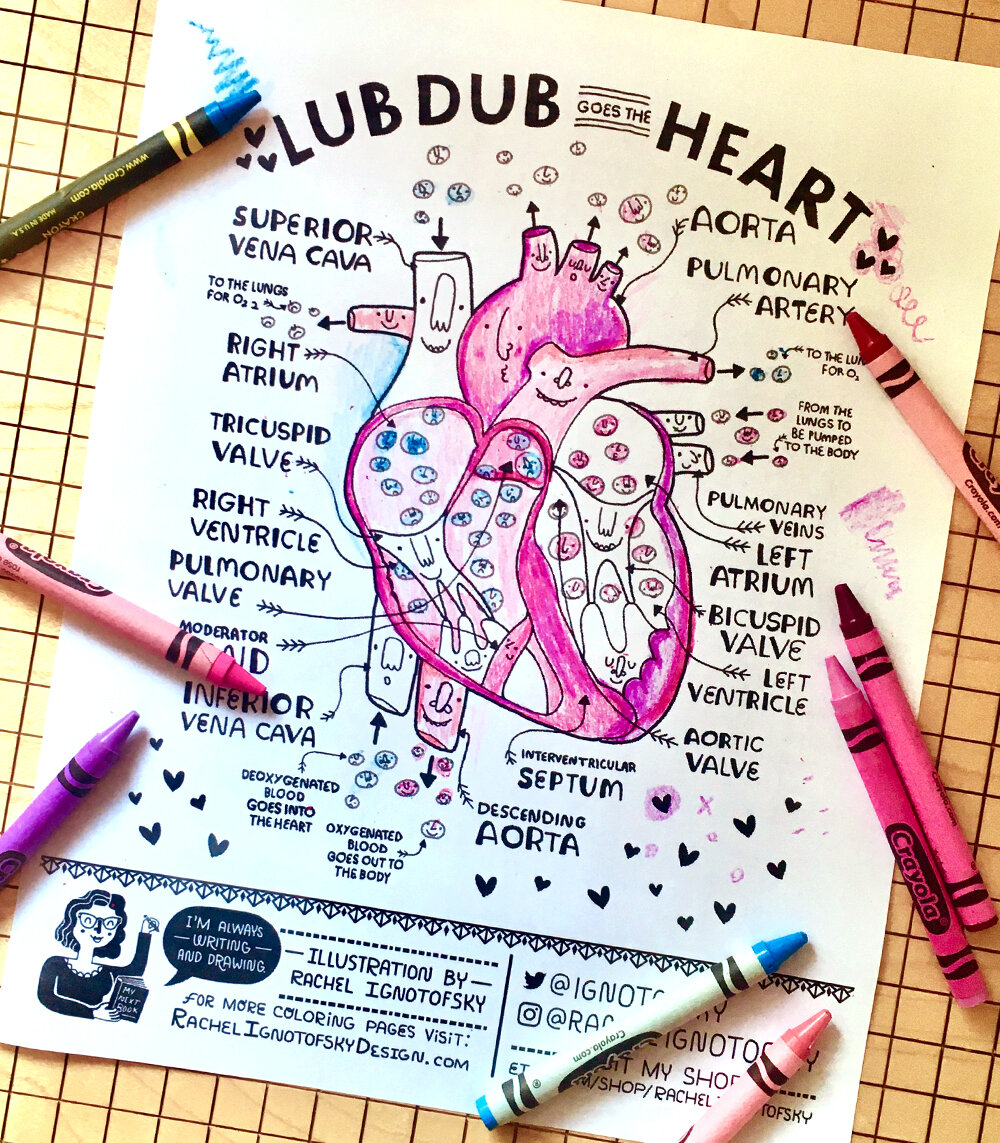 LUB DUB GOES THE HEART
SUPERIOR
VENA CAVA
AORTA
PULMONARY
ARTERY
TO THE LUNGS
FOR O₂
RIGHT
ATRIUM
TO THE
FOR O₂
FROM THE
LUNGS TO
BE PUMPED
TO THE BODY
TRICUSPID
VALVE
PULMONARY
VEINS
RIGHT
VENTRICLE
LEFT
ATRIUM
PULMONARY
VALVE
BICUSPID
VALVE
MODERATOR
LEFT
VENTRICLE
INFERIOR
VENA CAVA
AORTIC
VALVE
INTERVENTRICULAR
SEPTUM
DEOXYGENATED
BLOOD
GOES INTO
THE HEART
OXYGENATED
BLOOD
GOES OUT TO
THE BODY
DESCENDING
AORTA
I'M ALWAYS
WRITING
AND DRAWING
MY
NEXT
BOOK
ILLUSTRATION BY
RACHEL IGNOTOFSKY
FOR MORE COLORING PAGES VISIT:
RACHELIGNOTOFSKYDESIGN.COM
MY SHOP
www.Crayola.com
CRAYON MADE IN U.S.A.
Crayola
Crayola.com